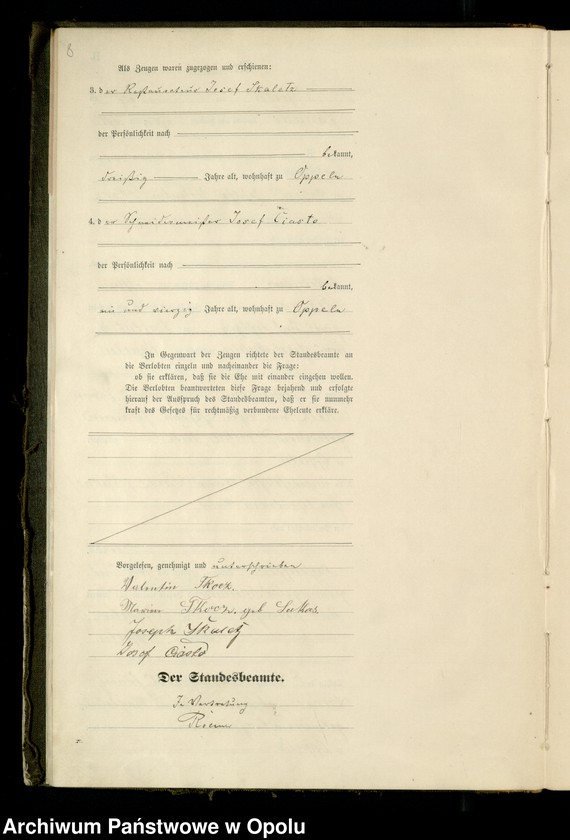 8
Als Zeugen waren zugezogen und erschienen:
3. der Restaurateur Josef Skaletz
der Persönlichkeit nach
bekannt,
dreißig Jahre alt, wohnhaft zu Oppeln
4. der Schneidermeister Josef Ciasto
der Persönlichkeit nach
bekannt,
ein und vierzig Jahre alt, wohnhaft zu Oppeln
In Gegenwart der Zeugen richtete der Standesbeamte an
die Verlobten einzeln und nacheinander die Frage:
ob sie erklären, daß sie die Ehe mit einander eingehen wollen.
Die Verlobten beantworteten diese Frage bejahend und erfolgte
hierauf der Ausspruch des Standesbeamten, daß er sie nunmehr
kraft des Gesetzes für rechtmäßig verbundene Eheleute erkläre.
Vorgelesen, genehmigt und unterschrieben
Valentin Tkocz.
Tkocz, geb Lukas
Joseph Skaletz
Josef Ciasto
Der Standesbeamte.
In Vertretung
Archiwum Państwowe w Opolu